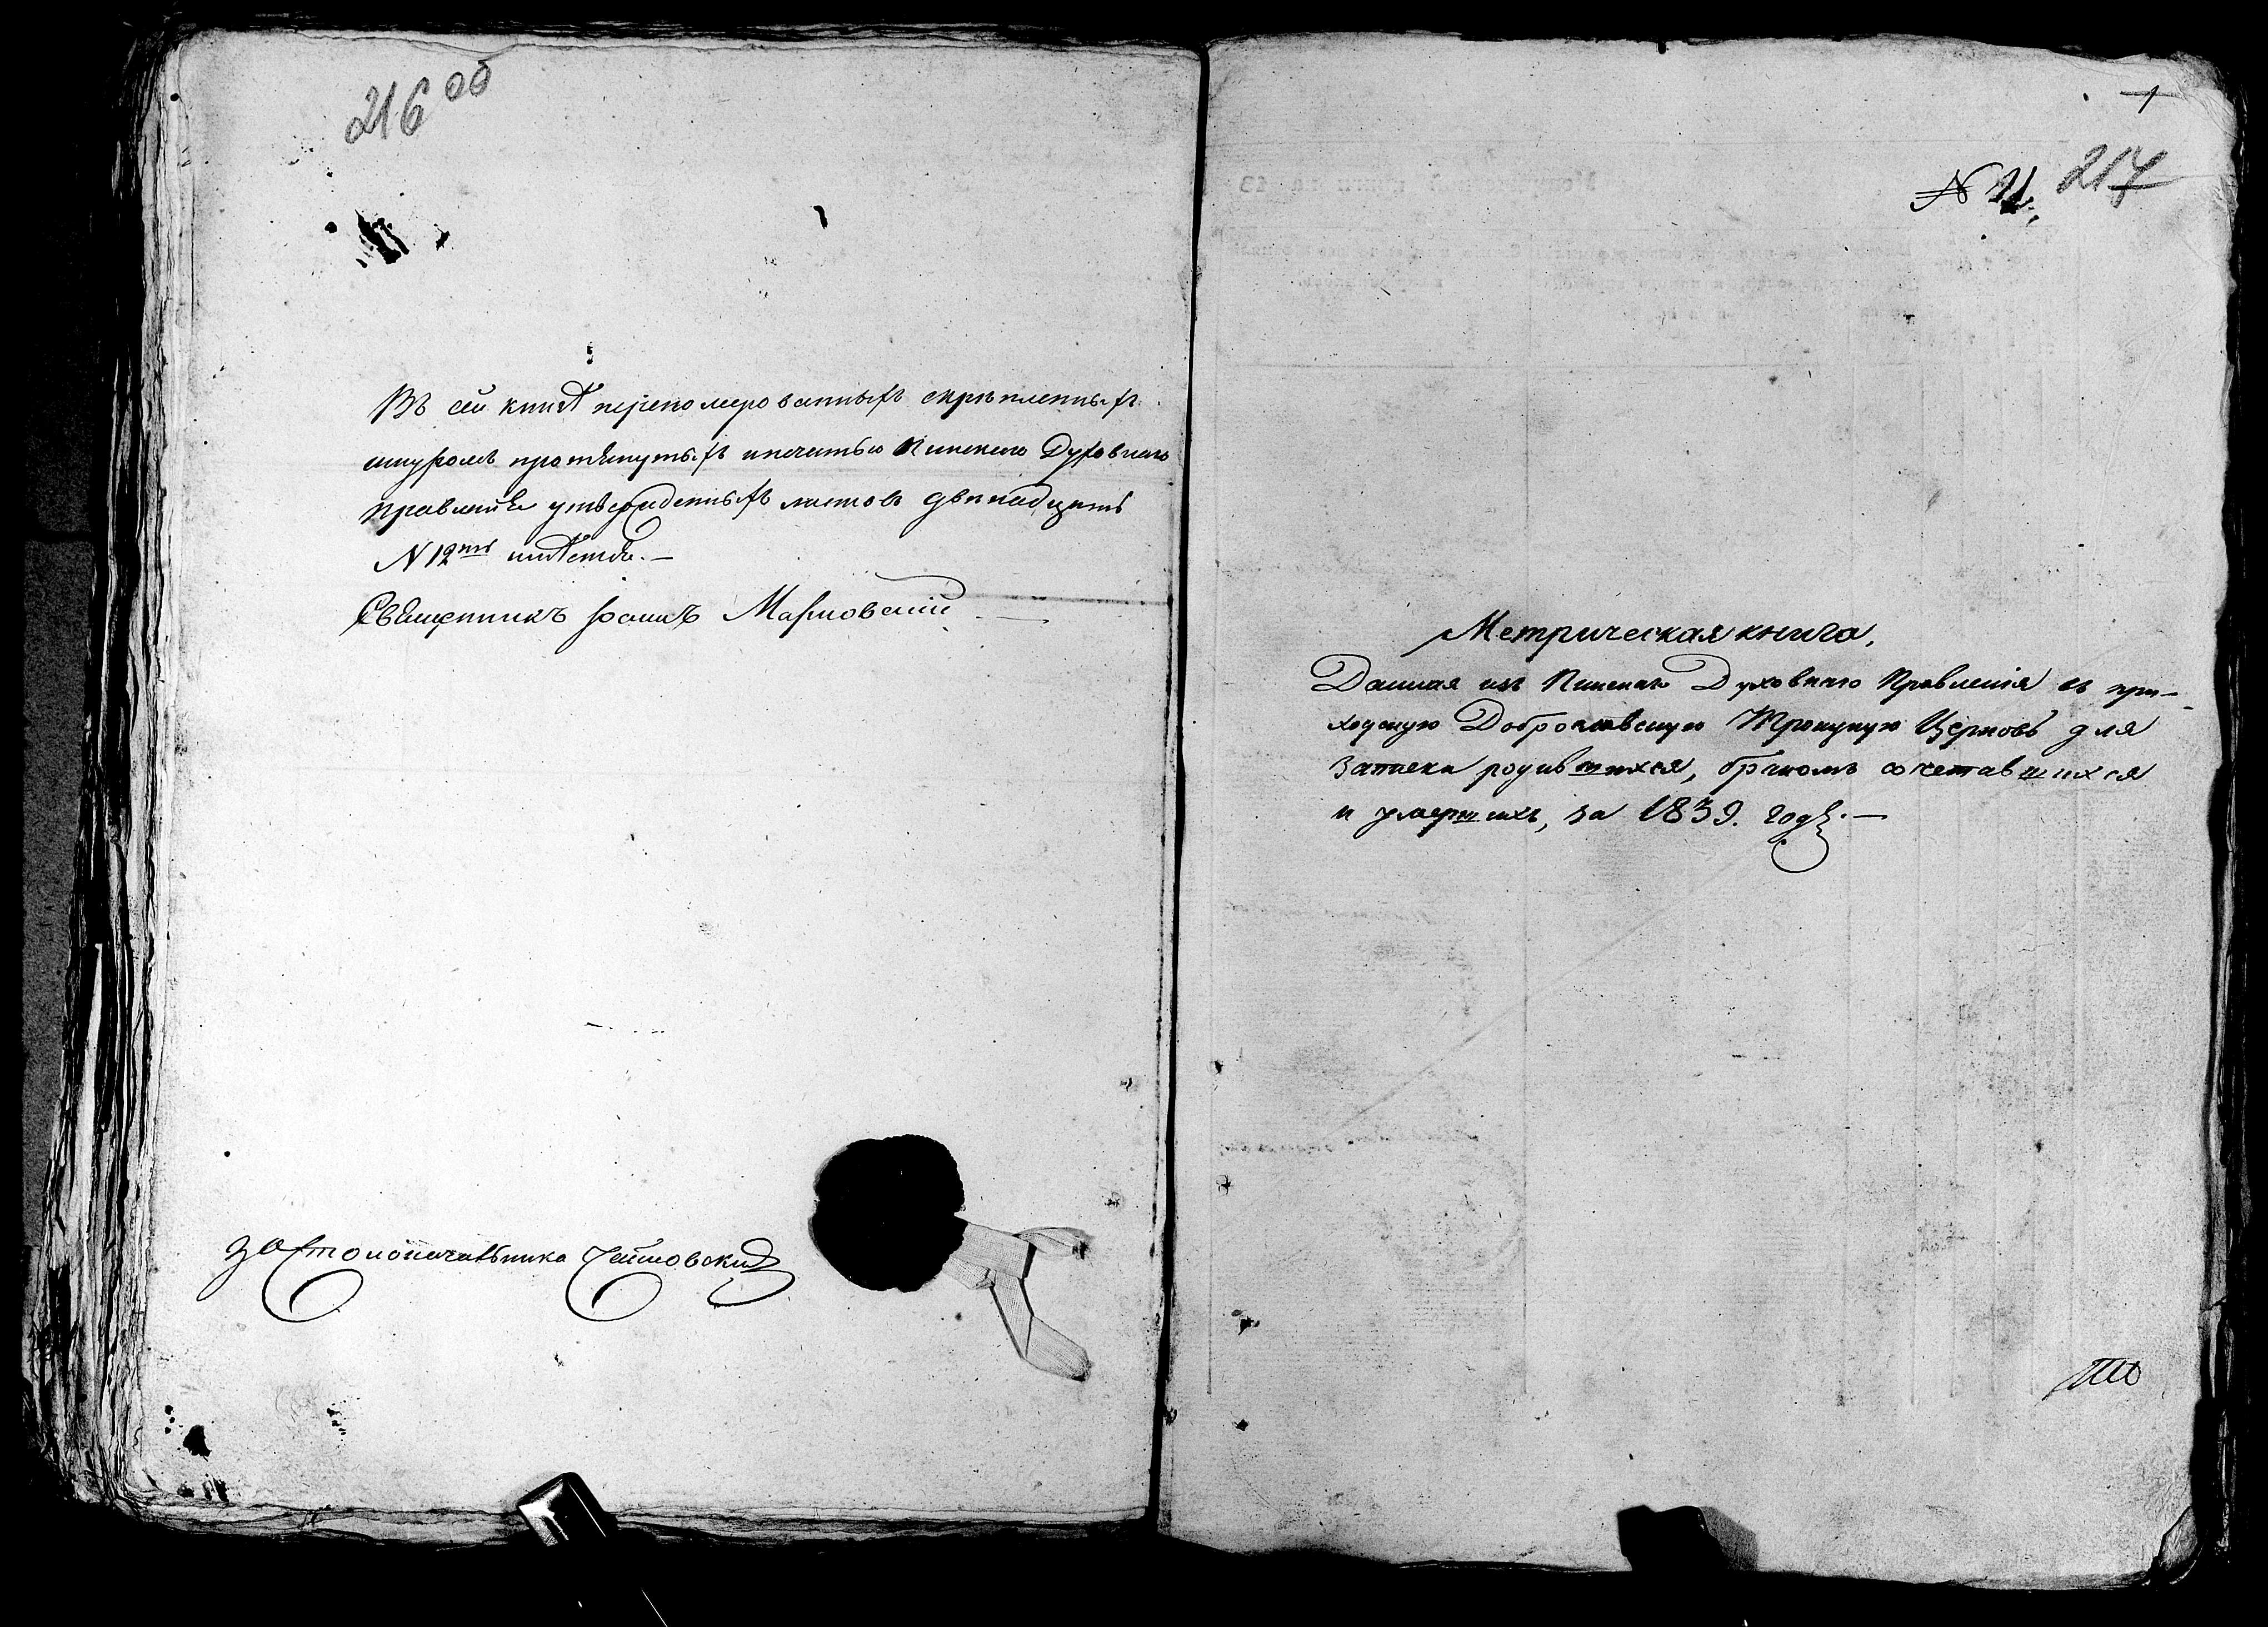 216 об
Въ сей книгѣ перепомерованныхъ скрѣпленныхъ
шнуромъ протянутыхъ и печатью Пинскаго Духовнаго
Правленія утвержденныхъ листовъ двенадцать
N 12ть имѣетса. —
Священникъ Іоаннъ
За Столоначальника
1
N 21. 217
Метрическая книга,
Данная изъ Пинскаго Духовнаго Правленія въ при-
ходскую Доброславскую Троицкую Церковь для
записки родившихся, бракомъ сочетавшихся
и умершихъ, за 1839. годъ. —